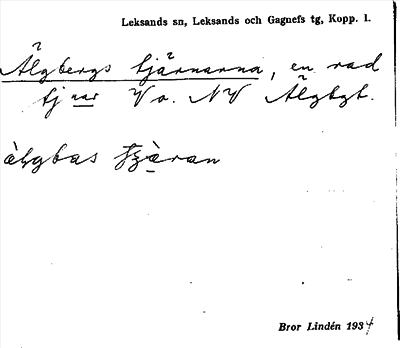 Leksands sn, Leksands och Gagnefs tg, Kopp. l.
Älgbergs tjärnarna, en rad
tjnar V o. NV Älgbgt.
àlgbas tjàran
Bror Lindén 1934